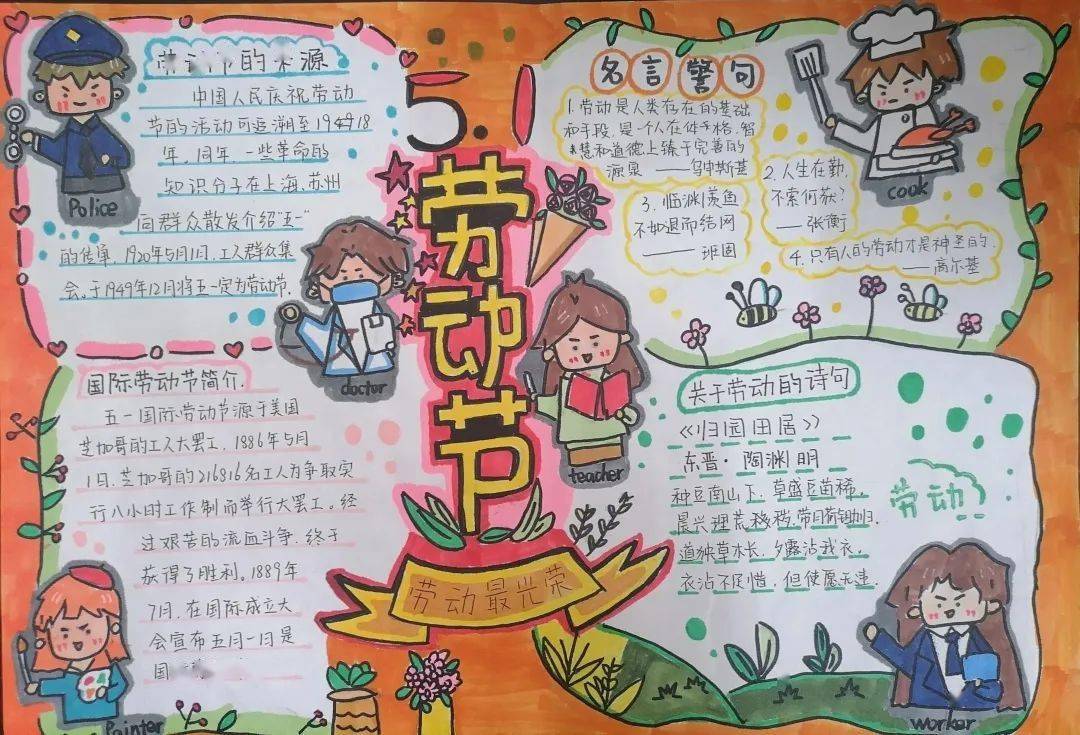 5.1
劳动节
劳动最光荣
的 源
中国人民庆祝劳动
节的活动可追溯至
年,同年,一些革命的
知识分子在上海、苏州
向群众散发介绍"五一"
的传单,1920年5月1日,工人群众集
会。于1949年12月将五一定为劳动节.
Police
doctor
国际劳动节简介.
五一国际劳动节源于美国
芝加哥的工人大罢工,1886年5月
1日,芝加哥的216816名工人为争取实
行八小时工作制而举行大罢工。经
过艰苦的流血斗争,终于
获得了胜利。1889年
7月,在国际成立大
会宣布五月一日是
国
Painter
名言警句
1.劳动是人类存在的基础
和手段,是一个人在体 格,智
慧和道德上臻于完善的
源泉 ——乌申斯基
2.人生在勤,
不索何获?
——张衡
3.临渊羡鱼
不如退而结网
——班固
4.只有人的劳动才是神圣的.
——高尔基
cook
teacher
关于劳动的诗句
《归园田居》
东晋·陶渊明
种豆南山下,草盛豆苗稀,
晨兴理荒秽,带月荷锄归.
道狭草木长,夕露沾我衣,
衣沾不足惜,但使愿无违.
劳动
worker